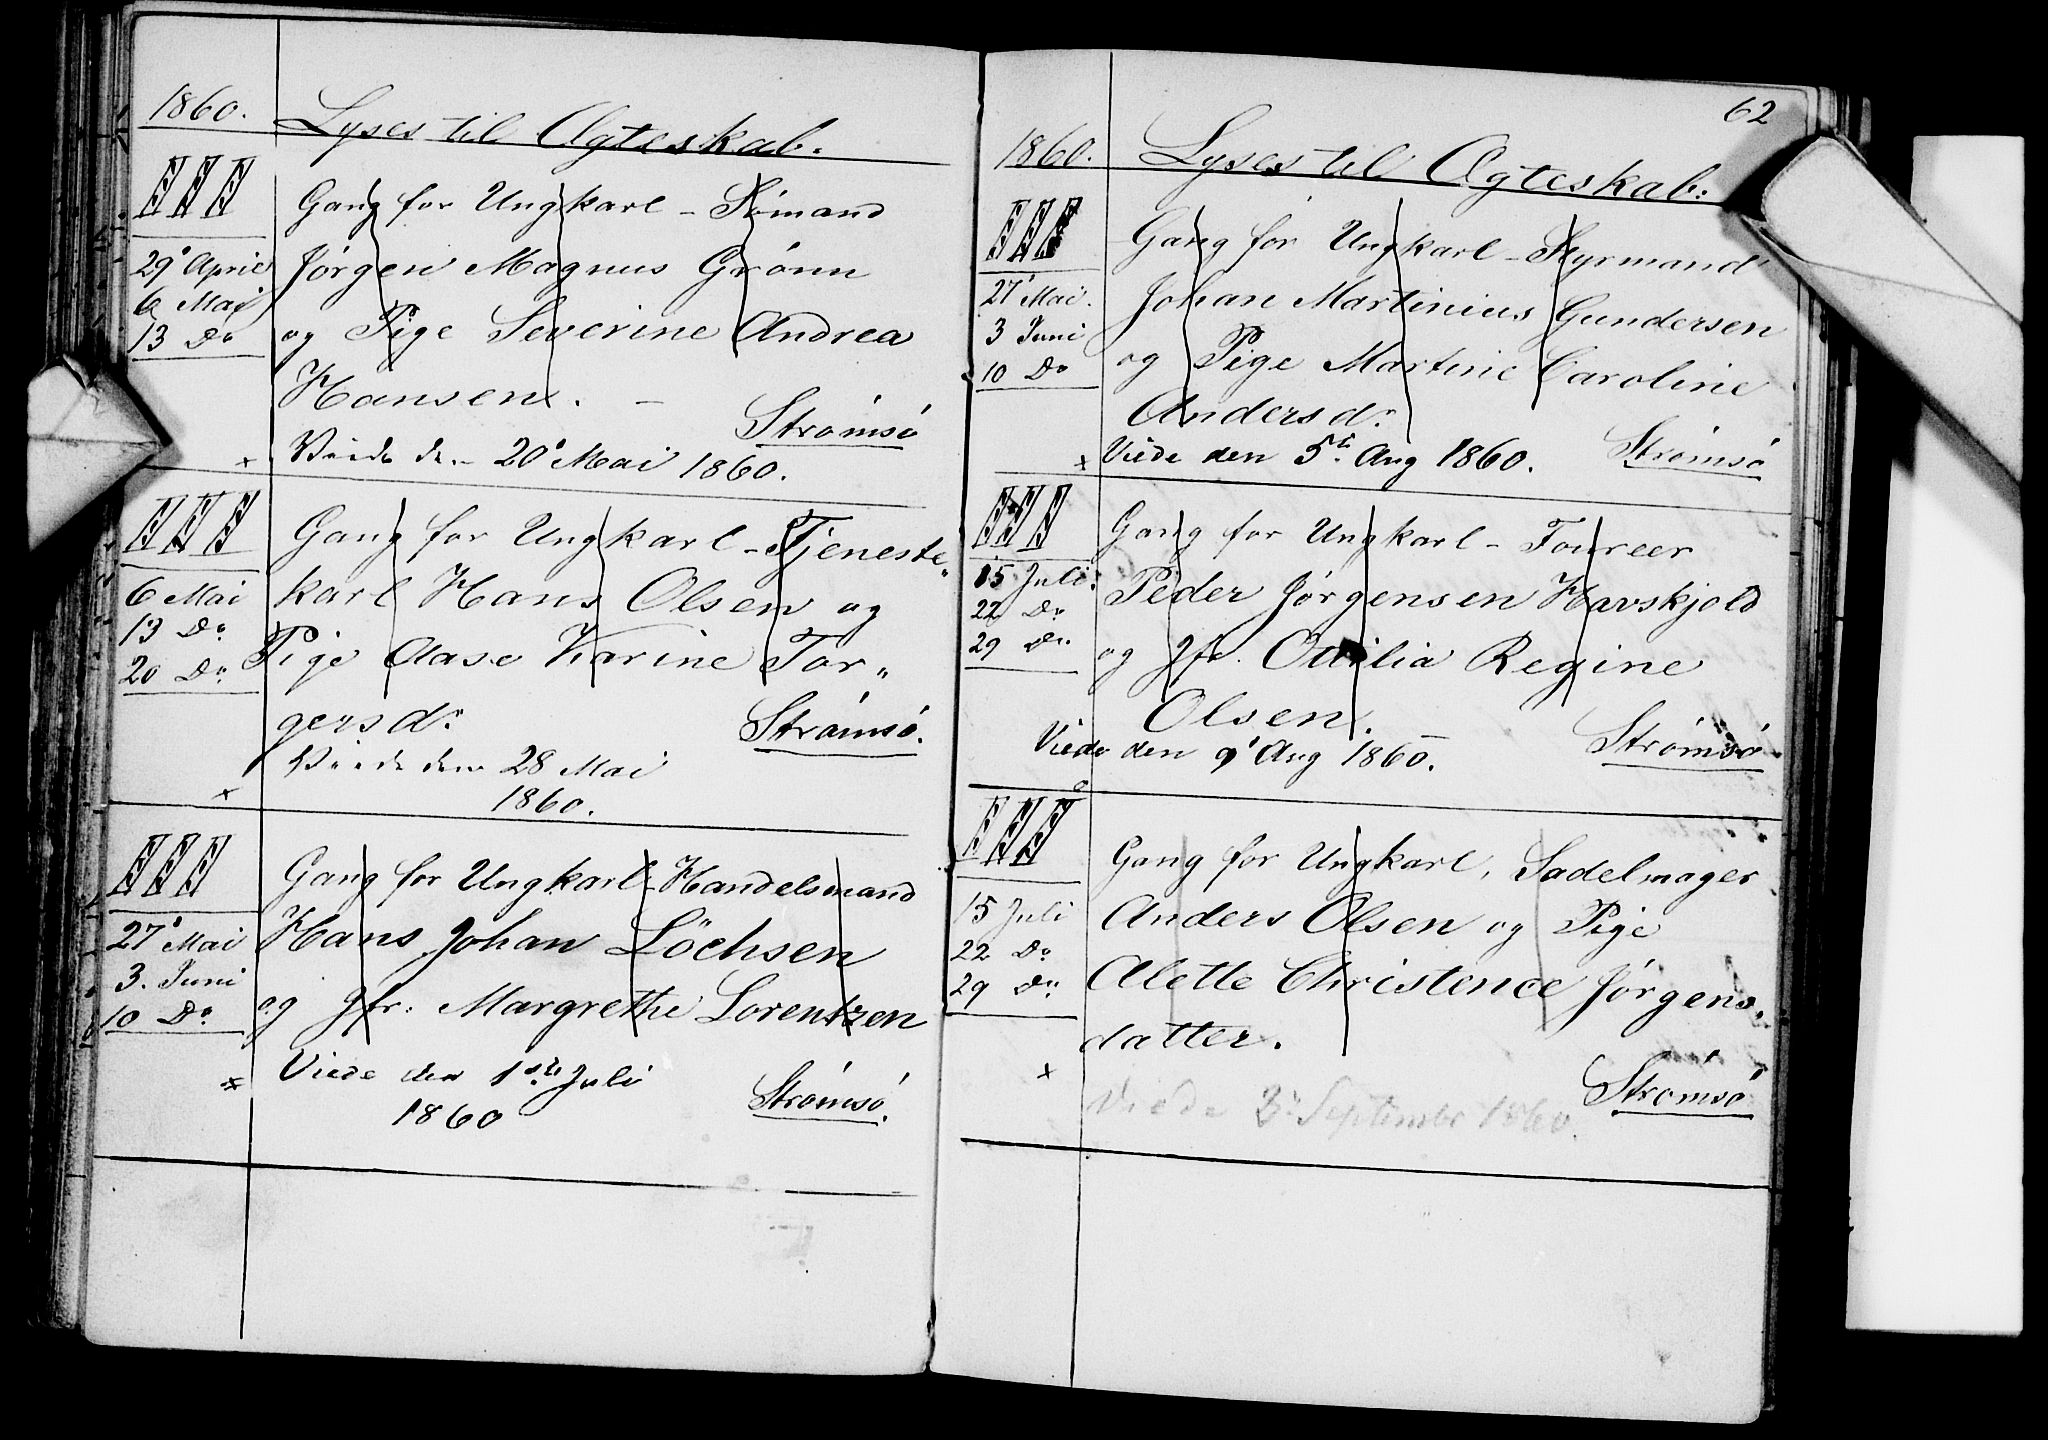 1860. Lyses til Ægteskab.
III Gang for Ungkarl - Sømand
29' April Jørgen Magnus Grønn
6 Mai og Pige Severine Andrea
13 Do
Hansen. -
Strømsø
x Viede den 20' Mai 1860.
III Gang for Ungkarl - Tjeneste„
6 Mai karl Hans Olsen og
13 Do.
20 Do. Pige Aase Karine Tor„
gersd. Strømsø.
Viede den 28 Mai
x 1860.
III Gang for Ungkarl - Handelsmand
27' Mai Hans Johan Löchsen
3. Juni
10 Do. og Jfr. Margrethe Lorentzen
x Viede den 1ste Juli
1860 Strømsø.
62
1860. Lyses til Ægteskab.
III Gang for Ungkarl - Styrmand
27' Mai. Johan Martinius Gundersen
3 Juni
10 Do og Pige Martine Caroline
Andersd.
x Viede den 5te Aug 1860. Strømsø
III Gang for Ungkarl - Foureer
15 Juli. Peder Jørgensen Havskjold
22 Do
29 Do. og Jfr. Ottilia Regine
Olsen. Strømsø
Viede den 9' Aug 1860.
III Gang for Ungkarl, Sadelmager
15 Juli Anders Olsen og Pige
22 Do.
29 Do. Alette Christence Jørgens„
datter.
x Strømsø
Viede 3' September 1860.